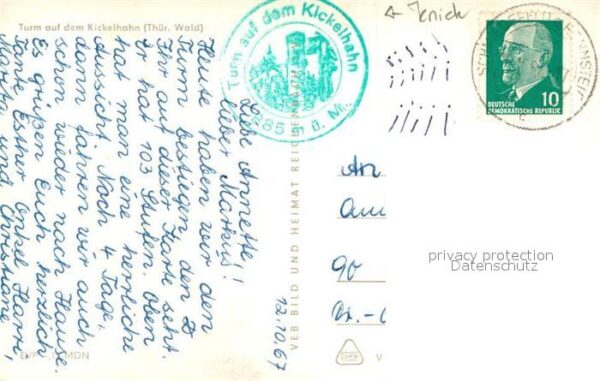 Turm auf dem Kickelhahn (Thür. Wald)
Liebe Annette!
Lieber Markus!
Heute haben wir den
Turm bestiegen den
Ihr auf dieser Karte seht.
Er hat 103 Stufen. Oben
hat man eine herrliche
Aussicht. Noch 4 Tage,
dann fahren wir auch
schon wieder nach Hause.
Es grüßen Euch herzlich
Tante Esther Onkel Harri,
Martin und Christiane.
12.10.67
Turm auf dem Kickelhahn
m ü. M.
VEB BILD UND HEIMAT REICHENBACH
DEUTSCHE
DEMOKRATISCHE REPUBLIK
10
An
90
privacy protection
Datenschutz
V